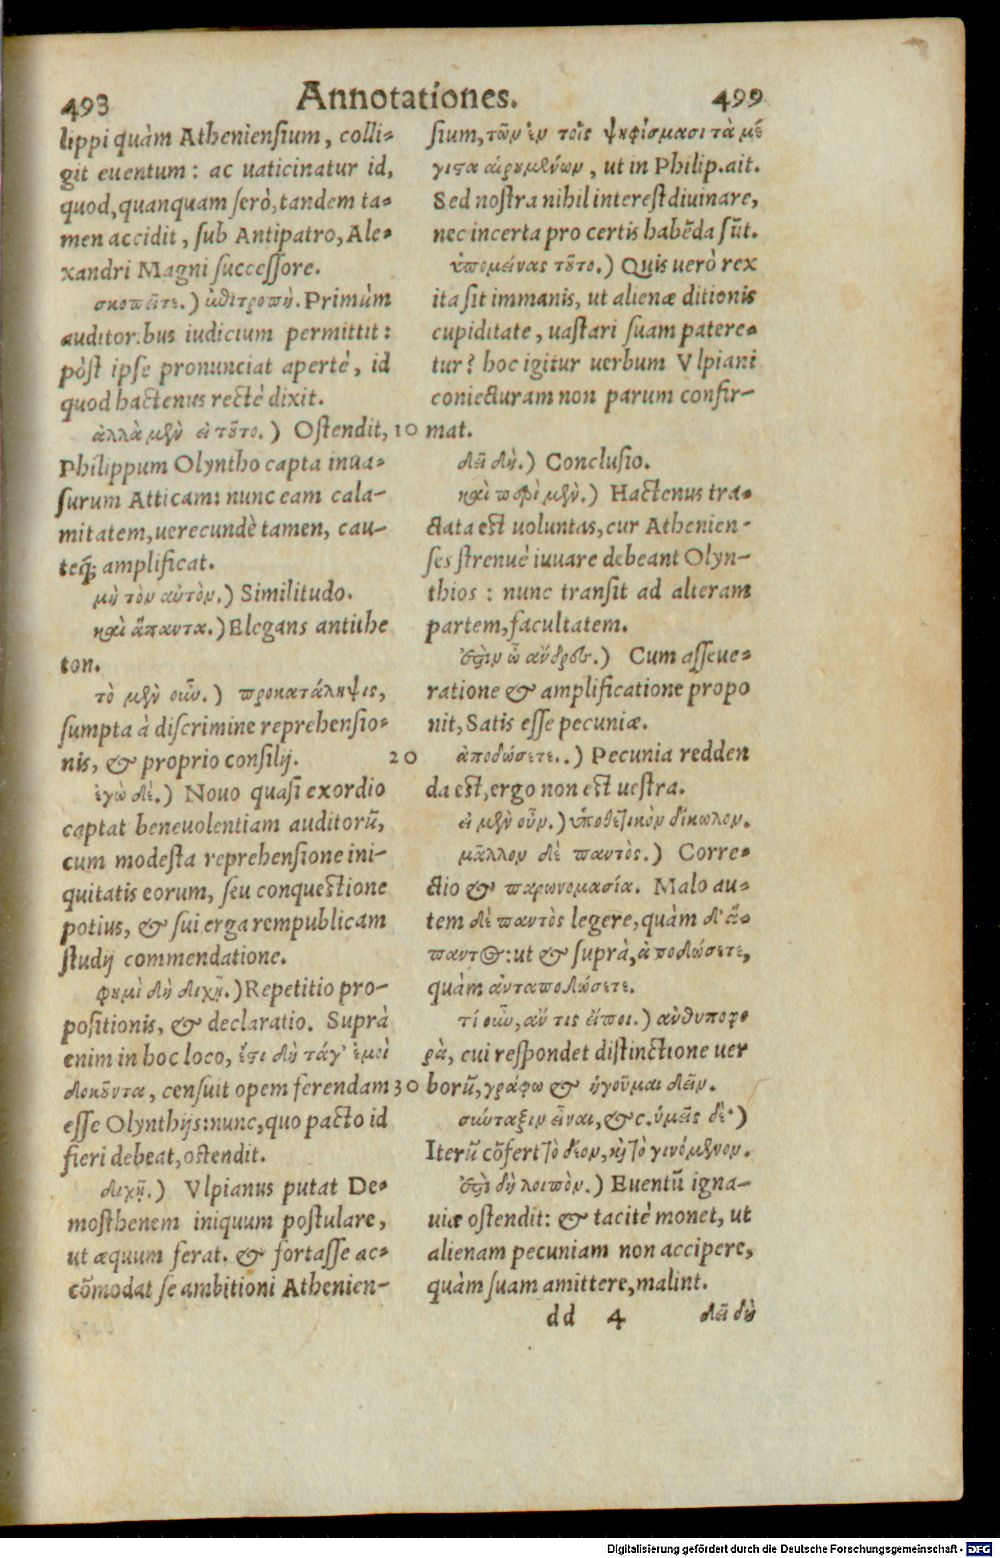 493
Annotationes.
499
lippi quàm Atheniensium, colli-
git euentum: ac uaticinatur id,
quod, quanquam serò, tandem ta-
men accidit, sub Antipatro, Ale-
xandri Magni successore.
σκοπεῖτε.) ἐπιτροπή. Primùm
auditoribus iudicium permittit:
pòst ipse pronunciat apertè, id
quod hactenus rectè dixit.
ἀλλὰ μὴν εἰ τοῦτο.) Ostendit,
Philippum Olyntho capta inua-
surum Atticam: nunc eam cala-
mitatem, uerecundè tamen, cau-
teq́; amplificat.
μὴ τὸν αὐτὸν.) Similitudo.
καὶ ἅπαντα.) Elegans antithe
ton.
τὸ μὲν οὖν.) προκατάληψις,
sumpta à discrimine reprehensio-
nis, & proprio consilij.
ἐγὼ δέ.) Nouo quasi exordio
captat beneuolentiam auditorũ,
cum modesta reprehensione ini-
quitatis eorum, seu conquestione
potius, & sui erga rempublicam
studij commendatione.
φημὶ δὴ διχῇ.) Repetitio pro-
positionis, & declaratio. Suprà
enim in hoc loco, ἔστι δὴ τάγ' ἐμοὶ
δοκοῦντα, censuit opem ferendam
esse Olynthijs: nunc, quo pacto id
fieri debeat, ostendit.
διχῇ.) Vlpianus putat De-
mosthenem iniquum postulare,
ut æquum ferat. & fortasse ac-
cõmodat se ambitioni Athenien-
10
20
30
sium, τῶν ἐν τοῖς ψηφίσμασι τὰ μέ
γιστα αἱρουμένων, ut in Philip. ait.
Sed nostra nihil interest diuinare,
nec incerta pro certis habẽda sũt.
ὑπομείνας τοῦτο.) Quis uerò rex
ita sit immanis, ut alienæ ditionis
cupiditate, uastari suam patere-
tur? hoc igitur uerbum Vlpiani
coniecturam non parum confir-
mat.
δεῖ δὴ.) Conclusio.
καὶ περὶ μὲν.) Hactenus tra-
ctata est uoluntas, cur Athenien-
ses strenuè iuuare debeant Olyn-
thios: nunc transit ad alteram
partem, facultatem.
ἔστιν ὦ ἄνδρες.) Cum asseue-
ratione & amplificatione propo
nit, Satis esse pecuniæ.
ἀποδώσετε..) Pecunia redden
da est, ergo non est uestra.
εἰ μὲν οὖν.) ὑποθετικὸν δίκωλον.
μᾶλλον δὲ παντὸς.) Corre-
ctio & παρωνομασία. Malo au-
tem δὲ παντὸς legere, quàm δ' ἅ-
παντος: ut & suprà, ἀποδώσετε,
quàm ἀνταποδώσετε.
τί οὖν, ἄν τις εἴποι.) ἀνθυποφο-
ρὰ, cui respondet distinctione uer
borũ, γράφω & ἡγοῦμαι δεῖν.
σύνταξιν εἶναι, &c. ὑμεῖς δὲ.)
Iterũ cõfert τὸ δέον, κὴ τὸ γινόμενον.
ἔστι δὴ λοιπὸν.) Euentũ igna-
uiæ ostendit: & tacitè monet, ut
alienam pecuniam non accipere,
quàm suam amittere, malint.
dd 4 δεῖ δὴ
Digitalisierung gefördert durch die Deutsche Forschungsgemeinschaft - DFG